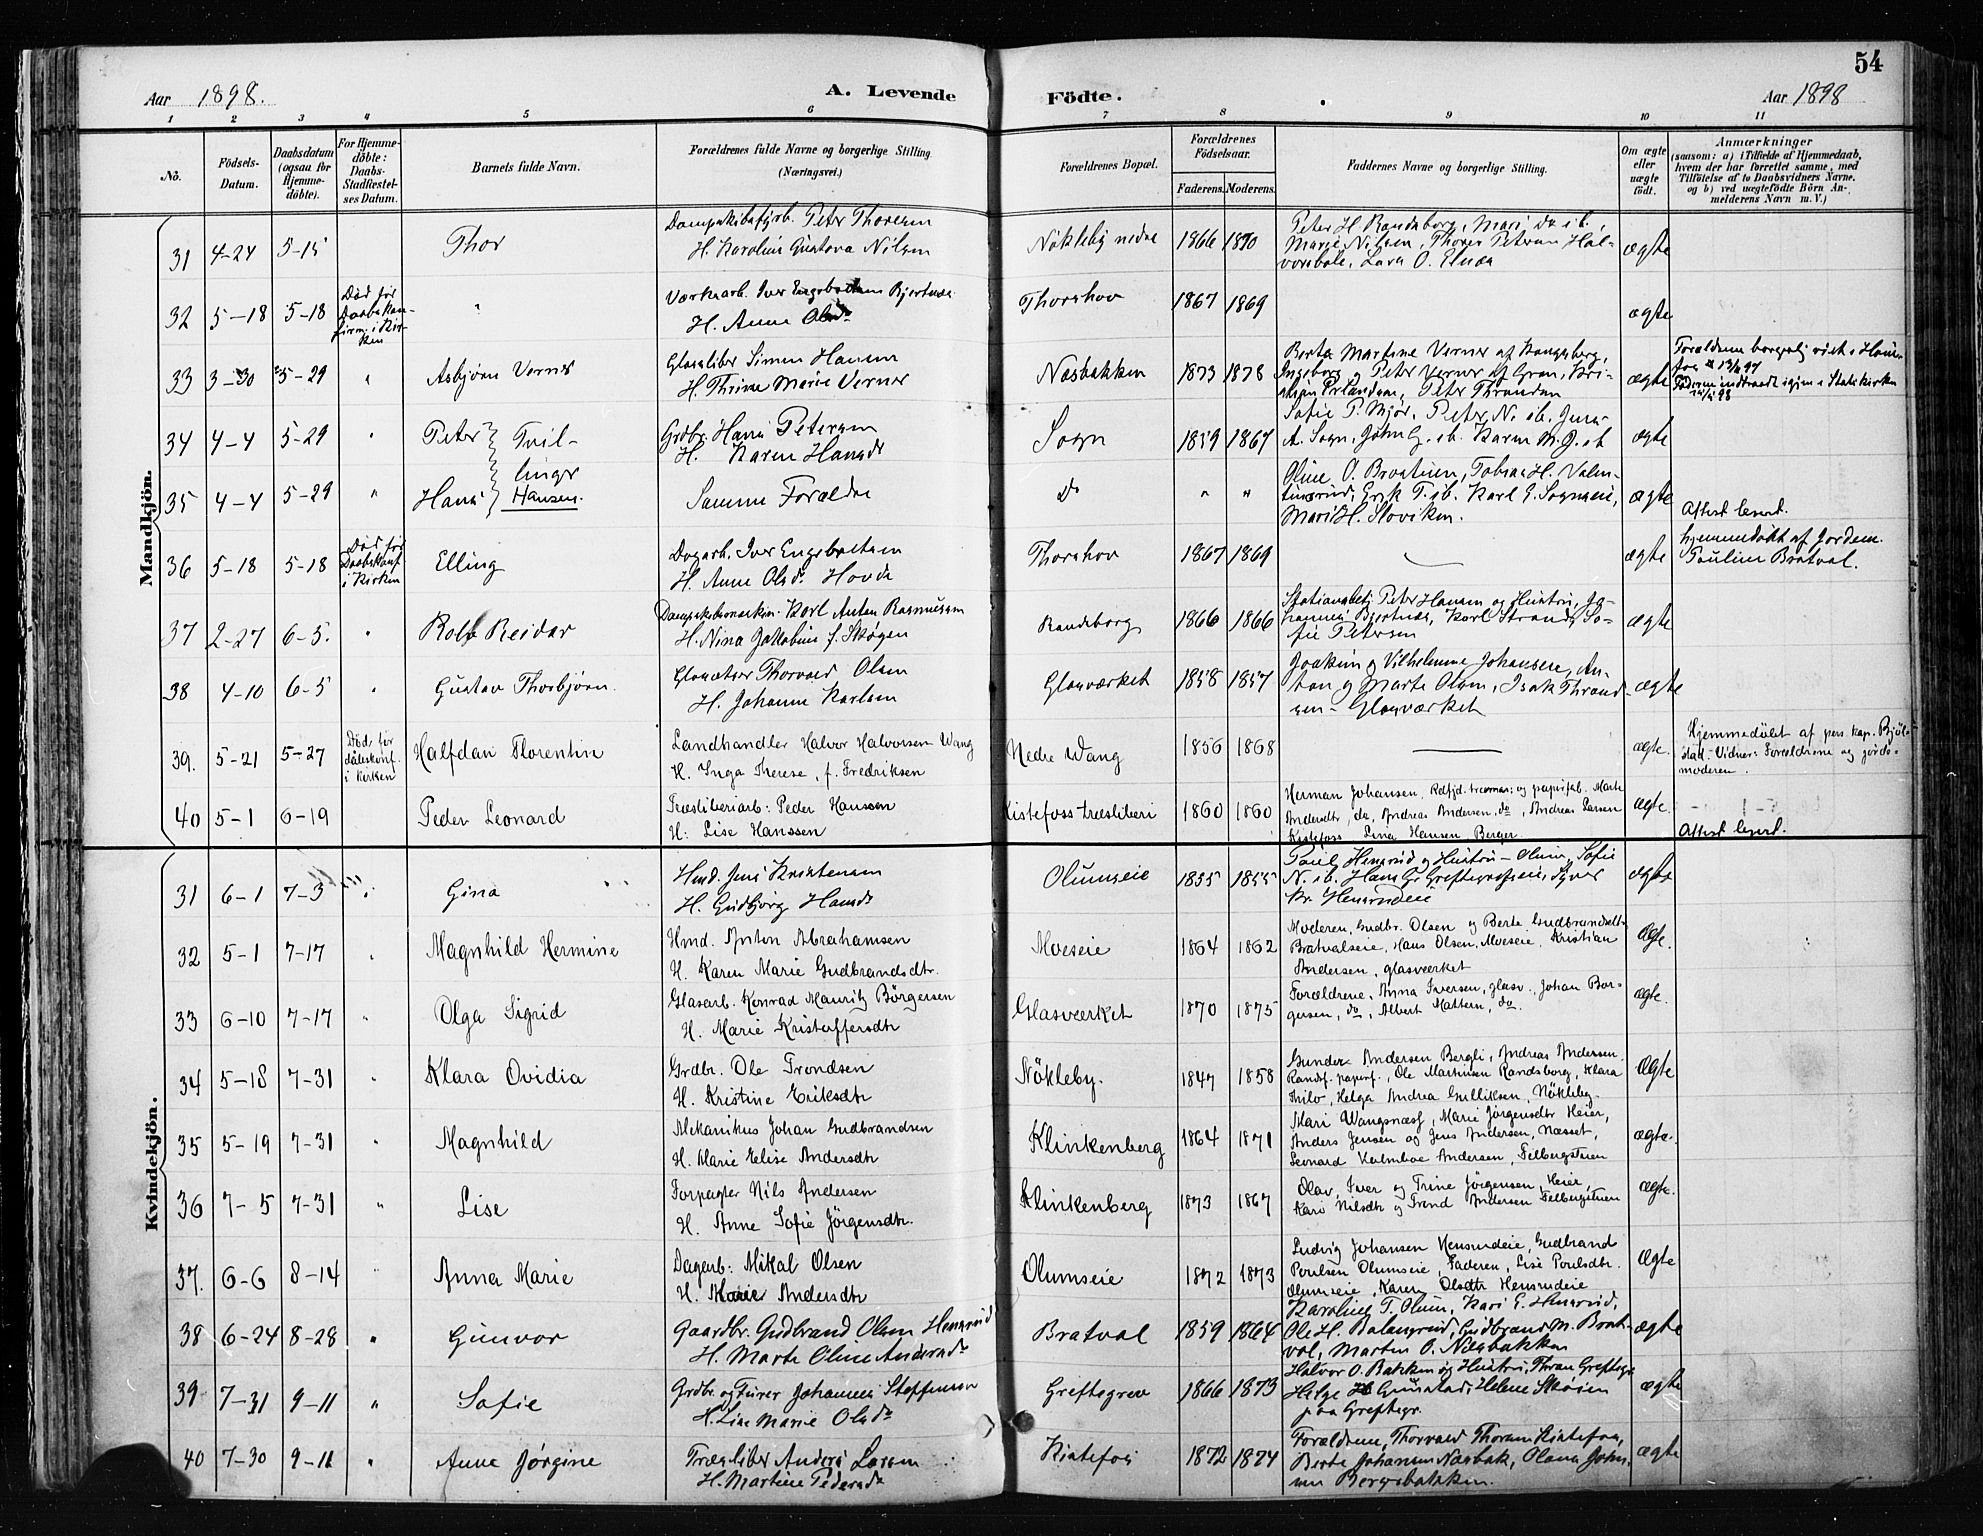 54
Aar 1898.
A. Levende Födte.
Aar 1898
1 2 3 4 5 6 7 8 9 10 11
No.
Födsels-Datum.
Daabsdatum (ogsaa for Hjemme-döbte).
For Hjemme-döbte: Daabs-Stadfæstel-ses Datum.
Barnets fulde Navn.
Forældrenes fulde Navne og borgerlige Stilling (Næringsvei.)
Forældrenes Bopæl.
Forældrenes Födselsaar.
Faderens. Moderens.
Faddernes Navne og borgerlige Stilling.
Om ægte eller uægte födt.
Anmærkninger
(saasom: a) i Tilfælde af Hjemmedaab, hvem der har forrettet samme, med Tilföielse af to Daabsvidners Navne, og b) ved uægtefödte Börn An-melderens Navn m. V.)
Mandkjön.
31 4-24 5-15 Thor
Peter Thoresen
H. Karoline Gustava Nilsen
Nökleby nedre 1866 1870
Peter H. Randsborg, Mari do ib.,
Marie Nilsen, Thorer Petersen
Lara O. Elnæs
ægte
32 5-18 5-18 Död før Daabskon-firm. i Kir-ken "
Værksarb. Iver Engebretsen Bjertnæs
H. Anne Olsdr
Thorshov 1867 1869 ægte
33 3-30 5-29 " Asbjørn Verner
Glassliber Simen Hansen
H. Thrine Marie Verner
Næsbakken 1873 1878
Berta Martine Verner af Kongsberg,
Ingeborg og Peter Verner af Gran,
Peter Throndsen
ægte
Forældrene borgerlig viet
Faderen indtraadt igjen i Statskirken
34 4-4 5-29 " Peter } Tvil-
Grdbr. Hans Petersen
H. Karen Hansdr
Sogn 1859 1867
Sofie P. Mjør, Peter N. ib. Jens
A. Sogn, John G. ib. Karen M. J. ib
ægte
35 4-4 5-29 " Hans } linger Hansen.
Samme Forældre
Do " "
Oline O. Braatien, Tobias H.
Erik T. ib. Karl E. Sognseie,
Mari H. Sloviken.
ægte
Attest besørt.
36 5-18 5-18 Död før Daabskonf i Kirken Elling
Dagarb. Iver Engebretsen
H. Anne Olsdr Hovde
Thorshov 1867 1869 — ægte
Hjemmedøbt af Jordem.
Pauline Bratval.
37 2-27 6-5. " Rolf Reidar
Karl Anton Rasmussen
H. Nina Jakobine f. Skøyen
Randsborg 1866 1866
Stationsbetj. Peter Hansen og Hustru, Jo-
hannes Bjertnæs, Karl Strande, So-
fie Petersen
ægte
38 4-10 6-5 " Gustav Thorbjørn.
Thorvald Olsen
H. Johanne Karlsen
Glasværket 1858 1857
Joakim og Vilhelmine Johansen, An-
ton og Marte Olsen, Isak Thrond-
sen - Glasværket
ægte
39. 5-21 5-27 Död før dåbskonf. i kirken Halfdan Florentin
Landhandler Halvor Halvorsen Wang
H. Inga Therese, f. Fredriksen
Nedre Wang 1856 1868 — ægte.
Hjemmedøbt af pers. kap. Bjøl-
stad. Vidner: Forældrene og jorde-
moderen.
40 5-1 6-19 Peder Leonard
Træsliberiarb: Peder Hanssen
H: Lise Hanssen
Kistefoss træsliberi 1860 1860
Herman Johansen, Marte
Andersdtr, do, Andreas Andersen, do, Andreas Larsen
Kistefoss Lina Hansen Berger.
ægte
Attest besørt.
Kvindekjön.
31 6-1 7-3 " Gina
Hmd. Jens Kristensen
H. Gudbjørg Hansdr
Olumseie 1855 1855
Paul Hensrud og Hustru - Olum, Sofie
N. ib. Hans G. Greftegrefseie, Syver
Kr. Hensrudeie
ægte
32 5-1 7-17 " Magnhild Hermine
Hmd. Anton Abrahamsen
H. Karen Marie Gudbrandsdtr.
Moeseie 1864 1862
Moderen, Gudbr. Olsen og Berte Gudbrandsdtr
Bratvalseie, Hans Olsen, Moeseie, Kristian
Andersen, glasværket
Ægte.
33 6-10 7-17 " Olga Sigrid
Glasarb. Konrad Mauritz Börgersen
H. Marie Kristoffersdtr
Glasværket 1870 1875
Forældrene, Anna Iversen, glasv., Johan Bör-
gersen, do, Albert Mattern, do.
Ægte.
34 5-18 7-31 " Klara Ovidia
Grdbr. Ole Trondsen
H. Kristine Eriksdtr
Nökleby. 1847 1858
Gunder Andersen Bergli, Andreas Andersen
Randsf. papirf., Ole Martinsen Randsborg, Klara
Thilo, Helga Andrea Gulliksen, Nökleby.
Ægte
35 5-19 7-31 " Magnhild
Mekanikus Johan Gudbrandsen
H. Marie Elise Andersdtr
Klinkenberg 1864 1871
Mari Wangsnæsf, Marie Jörgensdtr Heier,
Anders Jensen og Jens Andersen, Næsset,
Leonard Holmboe Andersen, Felbergstuen
ægte.
36 7-5 7-31 " Lise
Forpagter Nils Andersen
H. Anne Sofie Jörgensdtr.
Klinkenberg 1873 1867
Olav, Iver og Trine Jörgensen, Heier,
Kari Nilsdtr og Trond Andersen Felbergstuen
ægte.
37. 6-6 8-14 " Anna Marie
Dagarb: Mikal Olsen
H. Marie Andersdtr
Olumseie 1872 1873
Ludvig Johansen Hensrudeie, Gudbrand
Poulsen Olumseie, Faderen, Lise Poulsdtr.
Olumseie, Karen Olsdtr Hensrudeie
Ægte
38 6-24 8-28 " Gunvor
Gaardbr. Gudbrand Olsen Hensrud
H. Marte Oline Andersdr
Bratval 1859 1864
Karoline T. Olum, Kari E. Hensrud,
Ole H. Balangrud, Gudbrand M. Brat-
val, Marten O. Næsbakken
ægte
39 7-31 9-11 " Sofie
Grdbr. og Furer Johannes Steffensen
H. Lise Marie Olsdr
Greftegrev 1866 1873
Halvor O. Bakken og Hustru, Thron Greftegr.
Helge Grinstad, Helene Skøien
paa Greftegr.
ægte
40 7-30 9-11 " Anne Jørgine
Træsliber Anders Larsen
H. Martine Pedersdr
Kistefos 1872 1874
Forældrene, Thorvald Thoresen Kistefos,
Berte Johansen Næsbak, Olava Johan-
sen Bergsbakken.
ægte